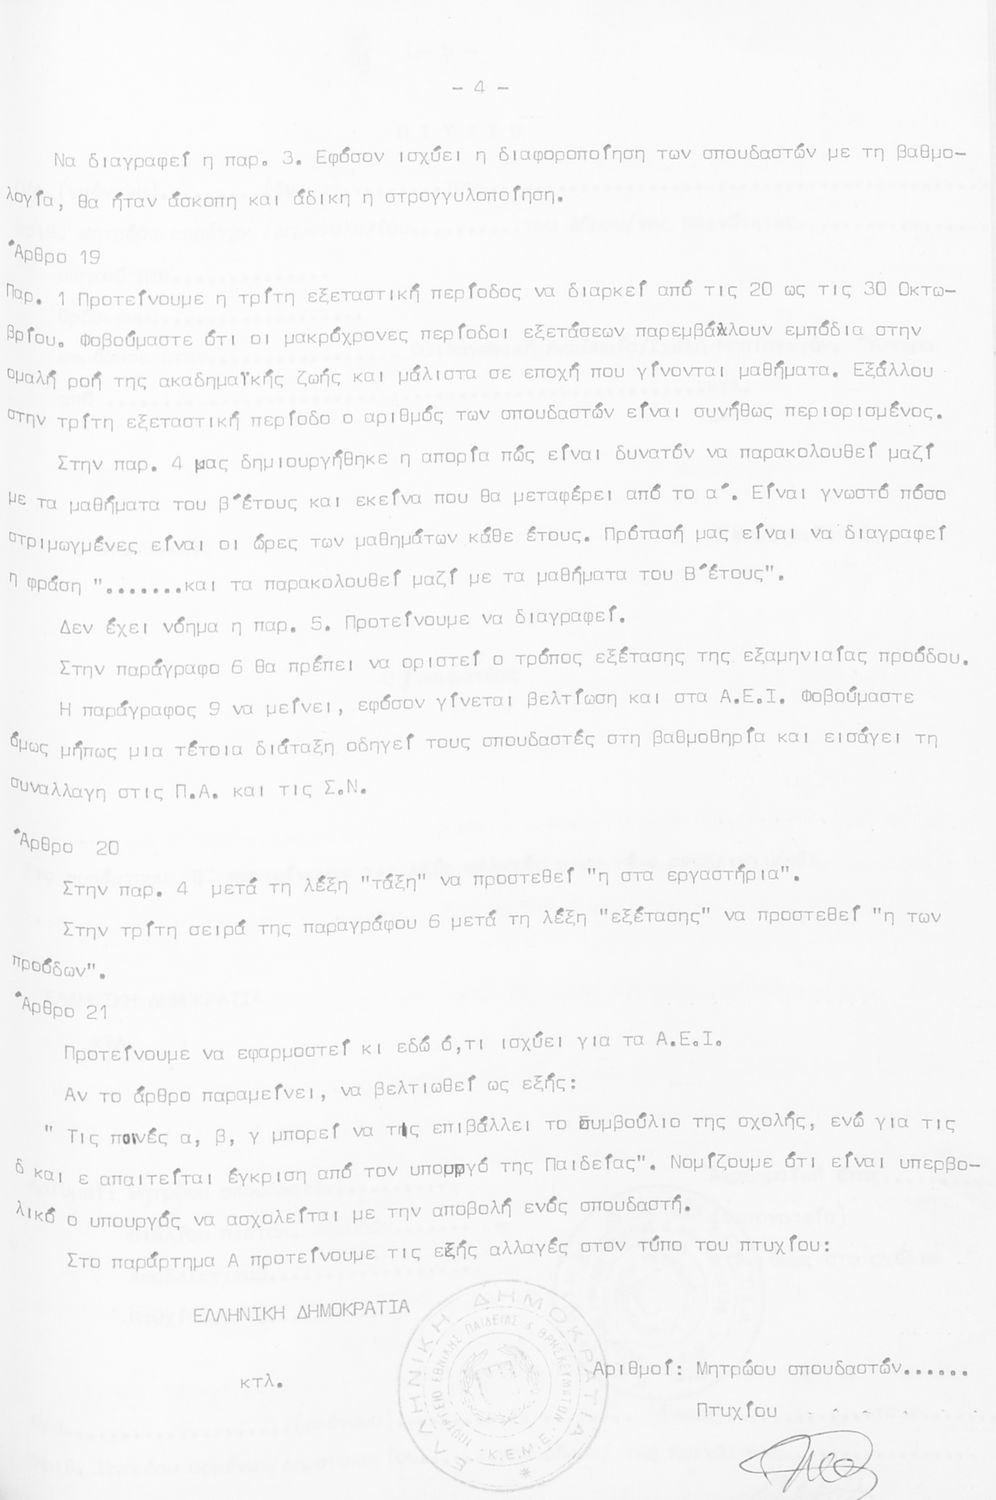 - 4 -
Να διαγραφεί η παρ. 3. Εφόσον ισχύει η διαφοροποίηση των σπουδαστών με τη βαθμο-
λογία, θα ήταν άσκοπη και άδικη η στρογγυλοποίηση.
Άρθρο 19
Παρ. 1 Προτείνουμε η τρίτη εξεταστική περίοδος να διαρκεί από τις 20 ως τις 30 Οκτω-
βρίου. Φοβούμαστε ότι οι μακρόχρονες περίοδοι εξετάσεων παρεμβάλλουν εμπόδια στην
ομαλή ροή της ακαδημαϊκής ζωής και μάλιστα σε εποχή που γίνονται μαθήματα. Εξάλλου
στην τρίτη εξεταστική περίοδο ο αριθμός των σπουδαστών είναι συνήθως περιορισμένος.
Στην παρ. 4 μας δημιουργήθηκε η απορία πώς είναι δυνατόν να παρακολουθεί μαζί
με τα μαθήματα του β΄έτους και εκείνα που θα μεταφέρει από το α΄. Είναι γνωστό πόσο
στριμωγμένες είναι οι ώρες των μαθημάτων κάθε έτους. Πρότασή μας είναι να διαγραφεί
η φράση ".......και τα παρακολουθεί μαζί με τα μαθήματα του Β΄έτους".
Δεν έχει νόημα η παρ. 5. Προτείνουμε να διαγραφεί.
Στην παράγραφο 6 θα πρέπει να οριστεί ο τρόπος εξέτασης της εξαμηνιαίας προόδου.
Η παράγραφος 9 να μείνει, εφόσον γίνεται βελτίωση και στα Α.Ε.Ι. Φοβούμαστε
όμως μήπως μια τέτοια διάταξη οδηγεί τους σπουδαστές στη βαθμοθηρία και εισάγει τη
συναλλαγη στις Π.Α. και τις Σ.Ν.
Άρθρο 20
Στην παρ. 4 μετά τη λέξη "τάξη" να προστεθεί "η στα εργαστήρια".
Στην τρίτη σειρά της παραγράφου 6 μετά τη λέξη "εξέτασης" να προστεθεί "η των
προόδων".
Άρθρο 21
Προτείνουμε να εφαρμοστεί κι εδώ ό,τι ισχύει για τα Α.Ε.Ι.
Αν το άρθρο παραμείνει, να βελτιωθεί ως εξής:
" Τις ποινές α, β, γ μπορεί να τις επιβάλλει το συμβούλιο της σχολής, ενώ για τις
δ και ε απαιτείται έγκριση από τον υπουργό της Παιδείας". Νομίζουμε ότι είναι υπερβο-
λικό ο υπουργός να ασχολείται με την αποβολή ενός σπουδαστή.
Στο παράρτημα Α προτείνουμε τις εξής αλλαγές στον τύπο του πτυχίου:
ΕΛΛΗΝΙΚΗ ΔΗΜΟΚΡΑΤΙΑ
ΕΛΛΗΝΙΚΗ ΔΗΜΟΚΡΑΤΙΑ
ΥΠΟΥΡΓΕΙΟ ΕΘΝΙΚΗΣ ΠΑΙΔΕΙΑΣ & ΘΡΗΣΚΕΥΜΑΤΩΝ
Κ.Ε.Μ.Ε.
Αριθμοί: Μητρώου σπουδαστών......
κτλ.
Πτυχίου